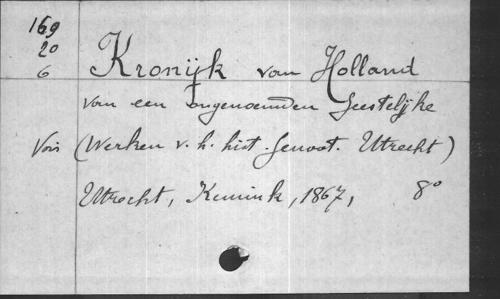 169
20
6
Kronijk van Holland
van een ongenoemden Geestelijke
(Werken v. h. hist. Genoot. Utrecht)
Utrecht, Kemink, 1867, 8°